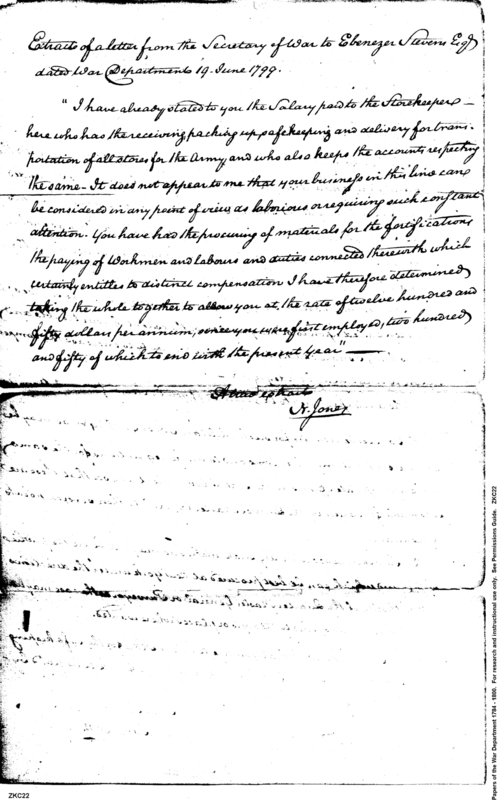 Extract of a letter from the Secretary of War to Ebenezer Stevens Esqr
dated War Department 19. June 1799.
"I have already stated to you the Salary paid to the Storekeeper
here who has the receiving, packing up, safekeeping and delivery for trans-
portation of all stores for the Army and who also keeps the accounts respecting
the same - It does not appear to me that your business in this line can
be considered in any point of view, as laborious or requiring such constant
attention. You have had the procuring of materials for the fortifications
the paying of Workmen and labours and duties connected therewith which
certainly entitles to distinct compensation I have therefore determined
taking the whole together to allow you at, the rate of twelve hundred and
fifty dollars per annum, since you were first employed, two hundred
and fifty of which to end with the present year"
A true extract
N. Jones
ZKC22
Papers of the War Department 1784 - 1800. For research and instructional use only. See Permissions Guide. ZKC22